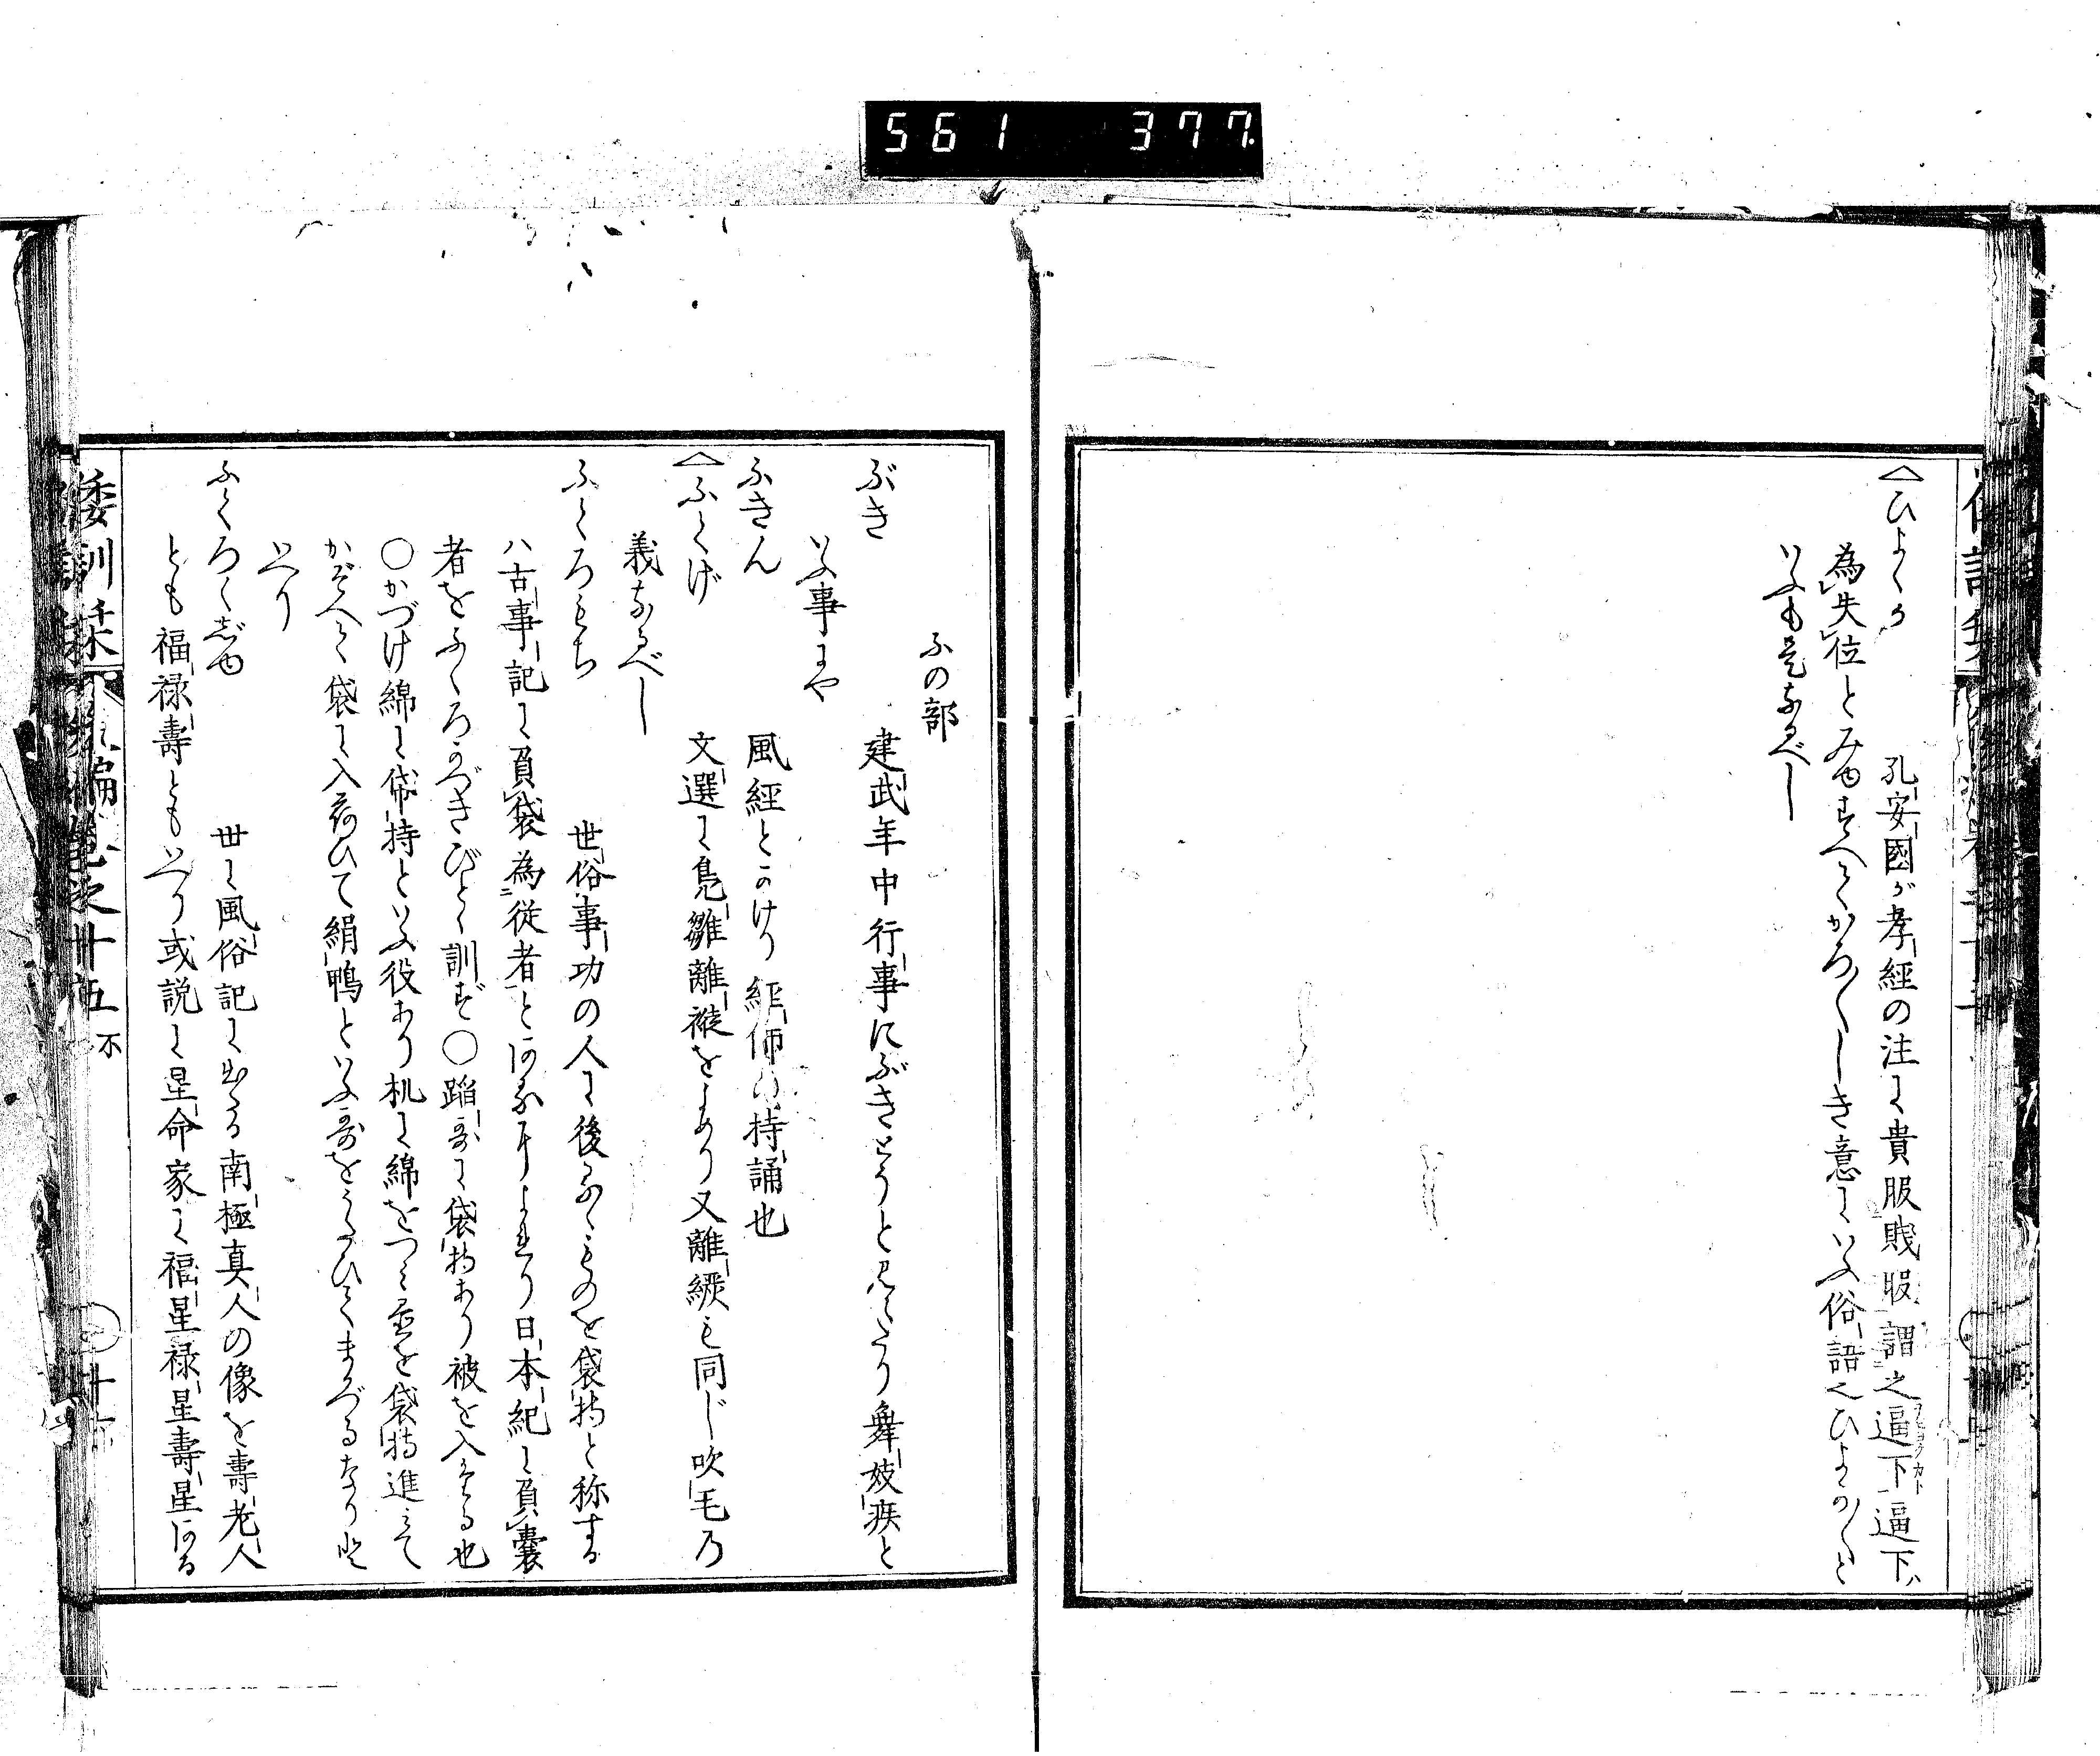 561 377
ひよくか 孔安國が孝經の注に貴服賤服謂之逼下逼下ハ
為失位とみゆすへてかろ〳〵しき意にいふ俗語也ひよか〳〵と
いふも是なるべし
ふの部
ぶき 建武年中行事にぶきとうと見えたり舞妓疾と
いふ事にや
ふきん 風經とかけり 經師の持誦也
ふくげ 文選に鳧雛離褷をよめり又離縰も同じ吹毛乃
義なるべし
ふくろもち 世俗事功の人に後るゝものを袋持と称する
ハ古事記に負袋為従者とあるによれり日本紀に負嚢
者をふくろかづきびとゝ訓ず〇蹈哥に袋持あり被を入たる也
〇かづけ綿に袋持といふ役あり机に綿をつミ置を袋持進ミて
かぞへて袋に入荷ひて絹鴨といふ哥をうたひてまかづるなりと
いへり
ふくろくじゆ 世に風俗記に出たる南極真人の像を壽老人
とも福禄壽ともいへり或説に星命家に福星禄星壽星ある
倭訓栞 編巻之廿五 不